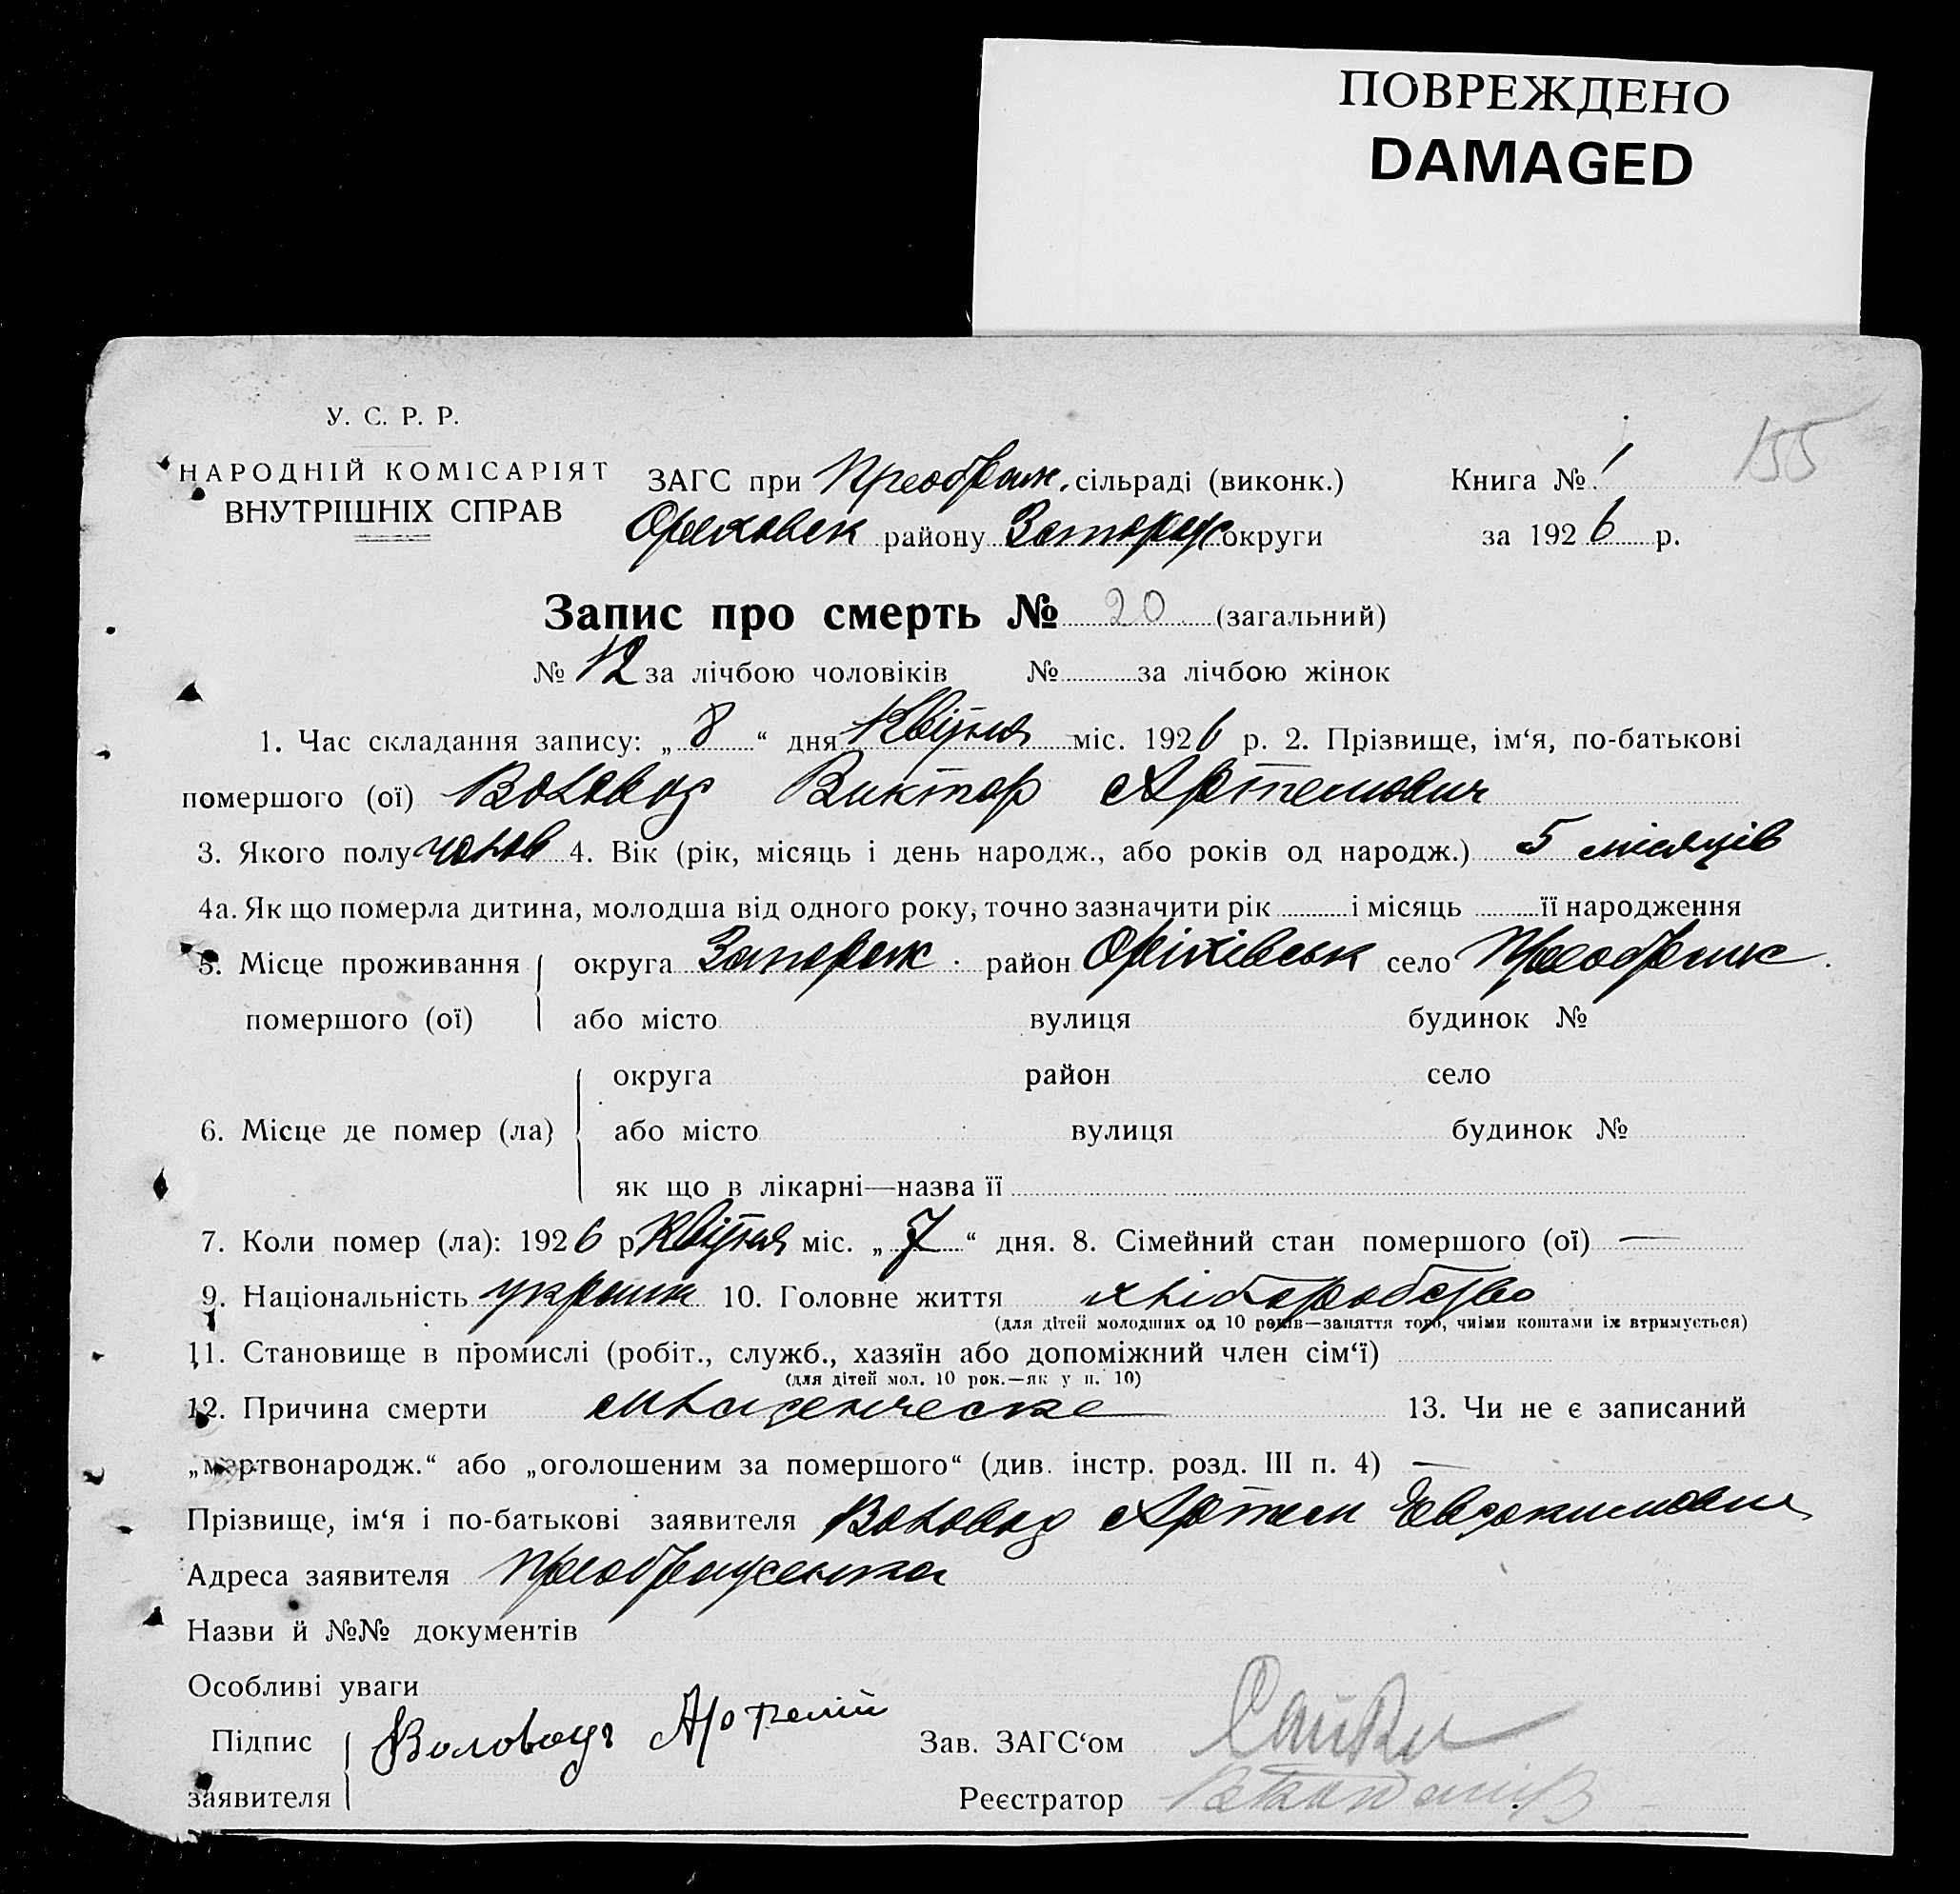 ПОВРЕЖДЕНО
DAMAGED
155
У. С. Р. Р.
НАРОДНІЙ КОМІСАРІЯТ
ВНУТРІШНІХ СПРАВ
ЗАГС при Преображ. сільраді (виконк.) Книга № 1
Ореховск району Запорож округи за 1926 р.
Запис про смерть № 20 (загальний)
№ 12 за лічбою чоловіків № за лічбою жінок
1. Час складання запису: „8“ дня Квітня міс. 1926 р. 2. Прізвище, ім‘я, по-батькові
помершого (ої) Воловод Виктор Артемович
3. Якого полу чолов 4. Вік (рік, місяць і день народж., або років од народж.) 5 місяців
4а. Як що померла дитина, молодша від одного року, точно зазначити рік і місяць її народження
5. Місце проживання округа Запорож. район Оріхівськ село Преображ.
помершого (ої) або місто вулиця будинок №
округа район село
6. Місце де помер (ла) або місто вулиця будинок №
як що в лікарні—назва її
7. Коли помер (ла): 1926 р Квітня міс. „7“ дня. 8. Сімейний стан помершого (ої) —
9. Національність украин 10. Головне життя хліборобство
(для дітей молодших од 10 років—заняття того, чиїми коштами їх втримується)
11. Становище в промислі (робіт., служб., хазяїн або допоміжний член сім‘ї)
(для дітей мол. 10 рок.—як у п. 10)
12. Причина смерти младенческе 13. Чи не є записаний
„мертвонародж.“ або „оголошеним за помершого“ (див. інстр. розд. III п. 4) —
Прізвище, ім‘я і по-батькові заявителя Воловод Артем Евдокимович
Адреса заявителя Преображенка
Назви й №№ документів
Особливі уваги
Підпис Воловодъ Артемій Зав. ЗАГС‘ом
заявителя Реєстратор